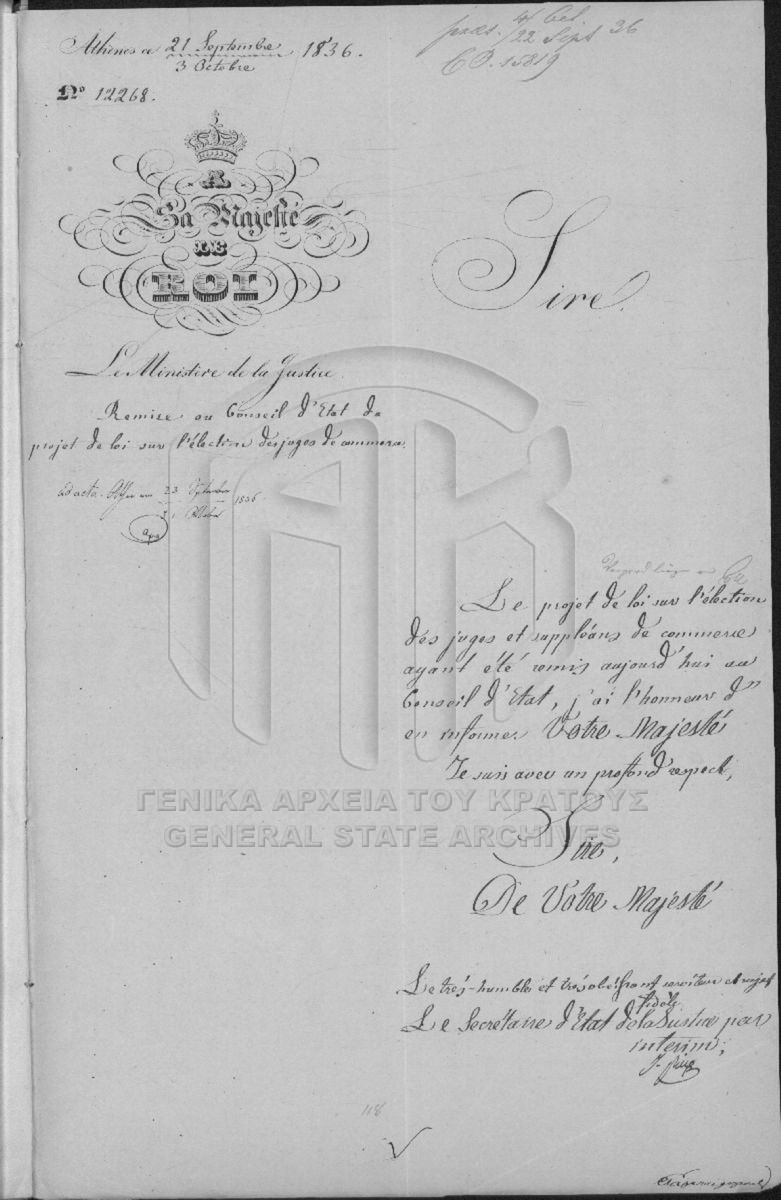 Athènes ce 21 Septembre / 3 Octobre 1836.
4/22 Sept 36
15819
No 12268.
A
Sa Majesté
LE
ROI
Sire.
Le Ministère de la Justice.
Remise au Conseil d'Etat du
projet de loi sur l'élection des juges de commerce.
ad acta. 23 Septembre 1836
Octobre
Le projet de loi sur l'élection
des juges et suppléans de commerce
ayant été remis aujourd'hui au
Conseil d'Etat, j'ai l'honneur d'
en informer Votre Majesté
Je suis avec un proffond respect,
ΓΕΝΙΚΑ ΑΡΧΕΙΑ ΤΟΥ ΚΡΑΤΟΥΣ
GENERAL STATE ARCHIVES
Sire,
De Votre Majesté
Le très-humble et très obéissant serviteur et sujet
fidèle
Le Secrétaire d'Etat de la Justice par
interim,
118